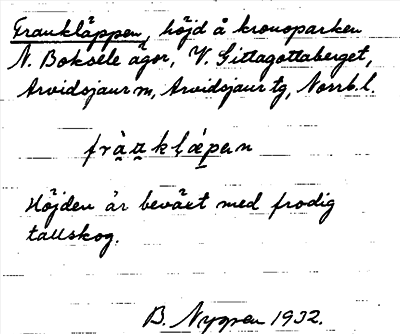 Frankläppen, höjd å kronoparken
N. Boksele ägor, V. Gittagottaberget,
Arvidsjaur sn, Arvidsjaur tg, Norrb. l.
Höjden är beväxt med frodig
tallskog.
B. Nygren 1932.